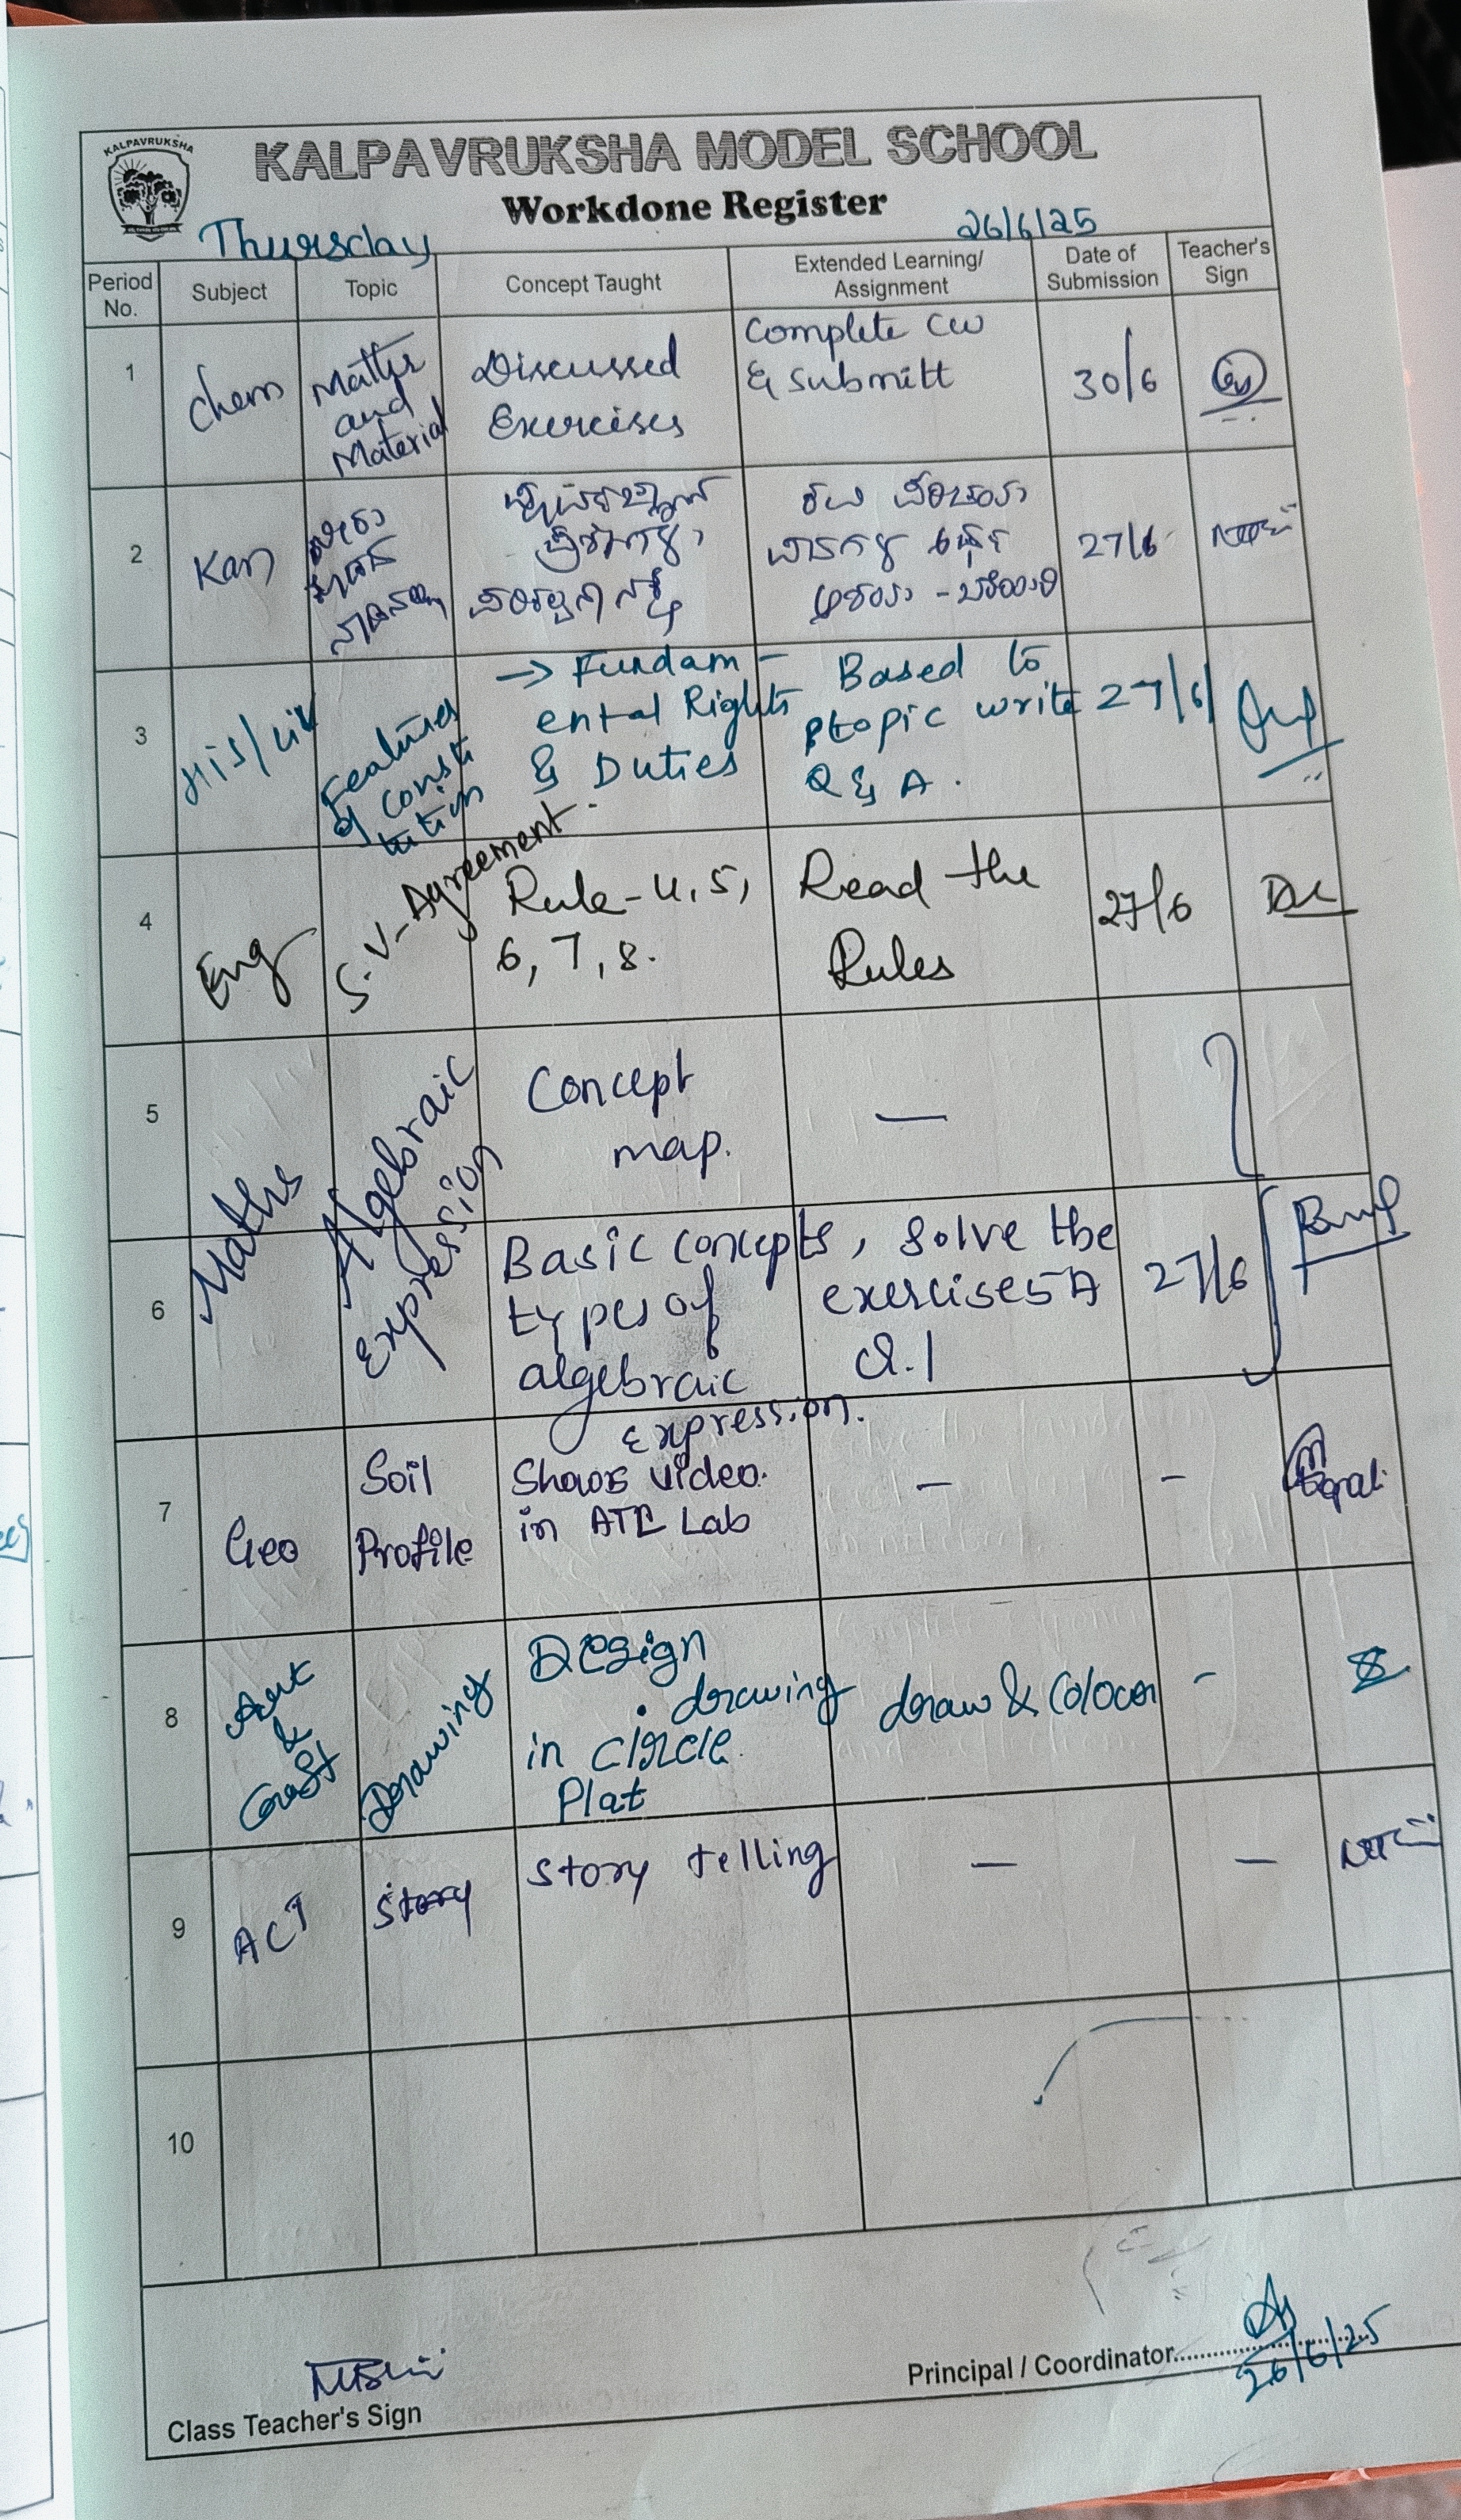 KALPAVRUKSHA
KALPAVRUKSHA MODEL SCHOOL
Workdone Register
Thursday 26/6/25
Period No. Subject Topic Concept Taught Extended Learning/ Assignment Date of Submission Teacher's Sign
1 Chem Matter and Material Discussed Exercises Complete CW & Submitt 30/6
2 Kan 27/6
3 His/Civ Features of Consti tution → Fundam- ental Rights & Duties Based to topic write Q & A. 27/6/
4 Eng S.V- Agreement. Rule-4,5, 6, 7, 8. Read the Rules 27/6
5 Concept map. —
Maths Algebraic Expression
6 Basic concepts, types of algebraic Expression. Solve the exercise 5A Q.1 27/6
7 Geo Soil Profile video. in Lab — -
8 Art & Craft Drawing Design . drawing in circle Plat draw & Colour -
9 ACT Story Story telling — —
10
Class Teacher's Sign
Principal / Coordinator
26/6/25